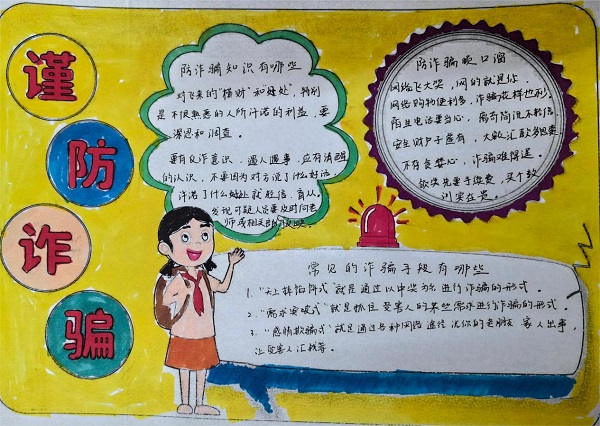 谨
防
诈
骗
防诈骗知识有哪些
对飞来的“横财”和“好处”，特别
是不很熟悉的人所许诺的利益，要
深思和调查。
要有反诈意识，遇人遇事，应有清醒
的认识，不要因为对方说了什么好话，
许诺了什么好处就轻信、盲从。
发现可疑人员要及时问老
师或相关部门反映。
防诈骗顺口溜
网络飞大奖，网的就是你。
网络购物便利多，诈骗花样也多。
陌生电话要当心，
不贪婪心，诈骗难得逞。
欲先要手续费，
常见的诈骗手段有哪些
1、“天上掉馅饼式”就是通过以中奖为名进行诈骗的形式。
2、“需求突破式”就是抓住受害人的某些需求进行诈骗的形式。
3、“感情欺骗式”就是通过各种网络途径说你的老朋友、家人出事，
让受害人汇钱等。